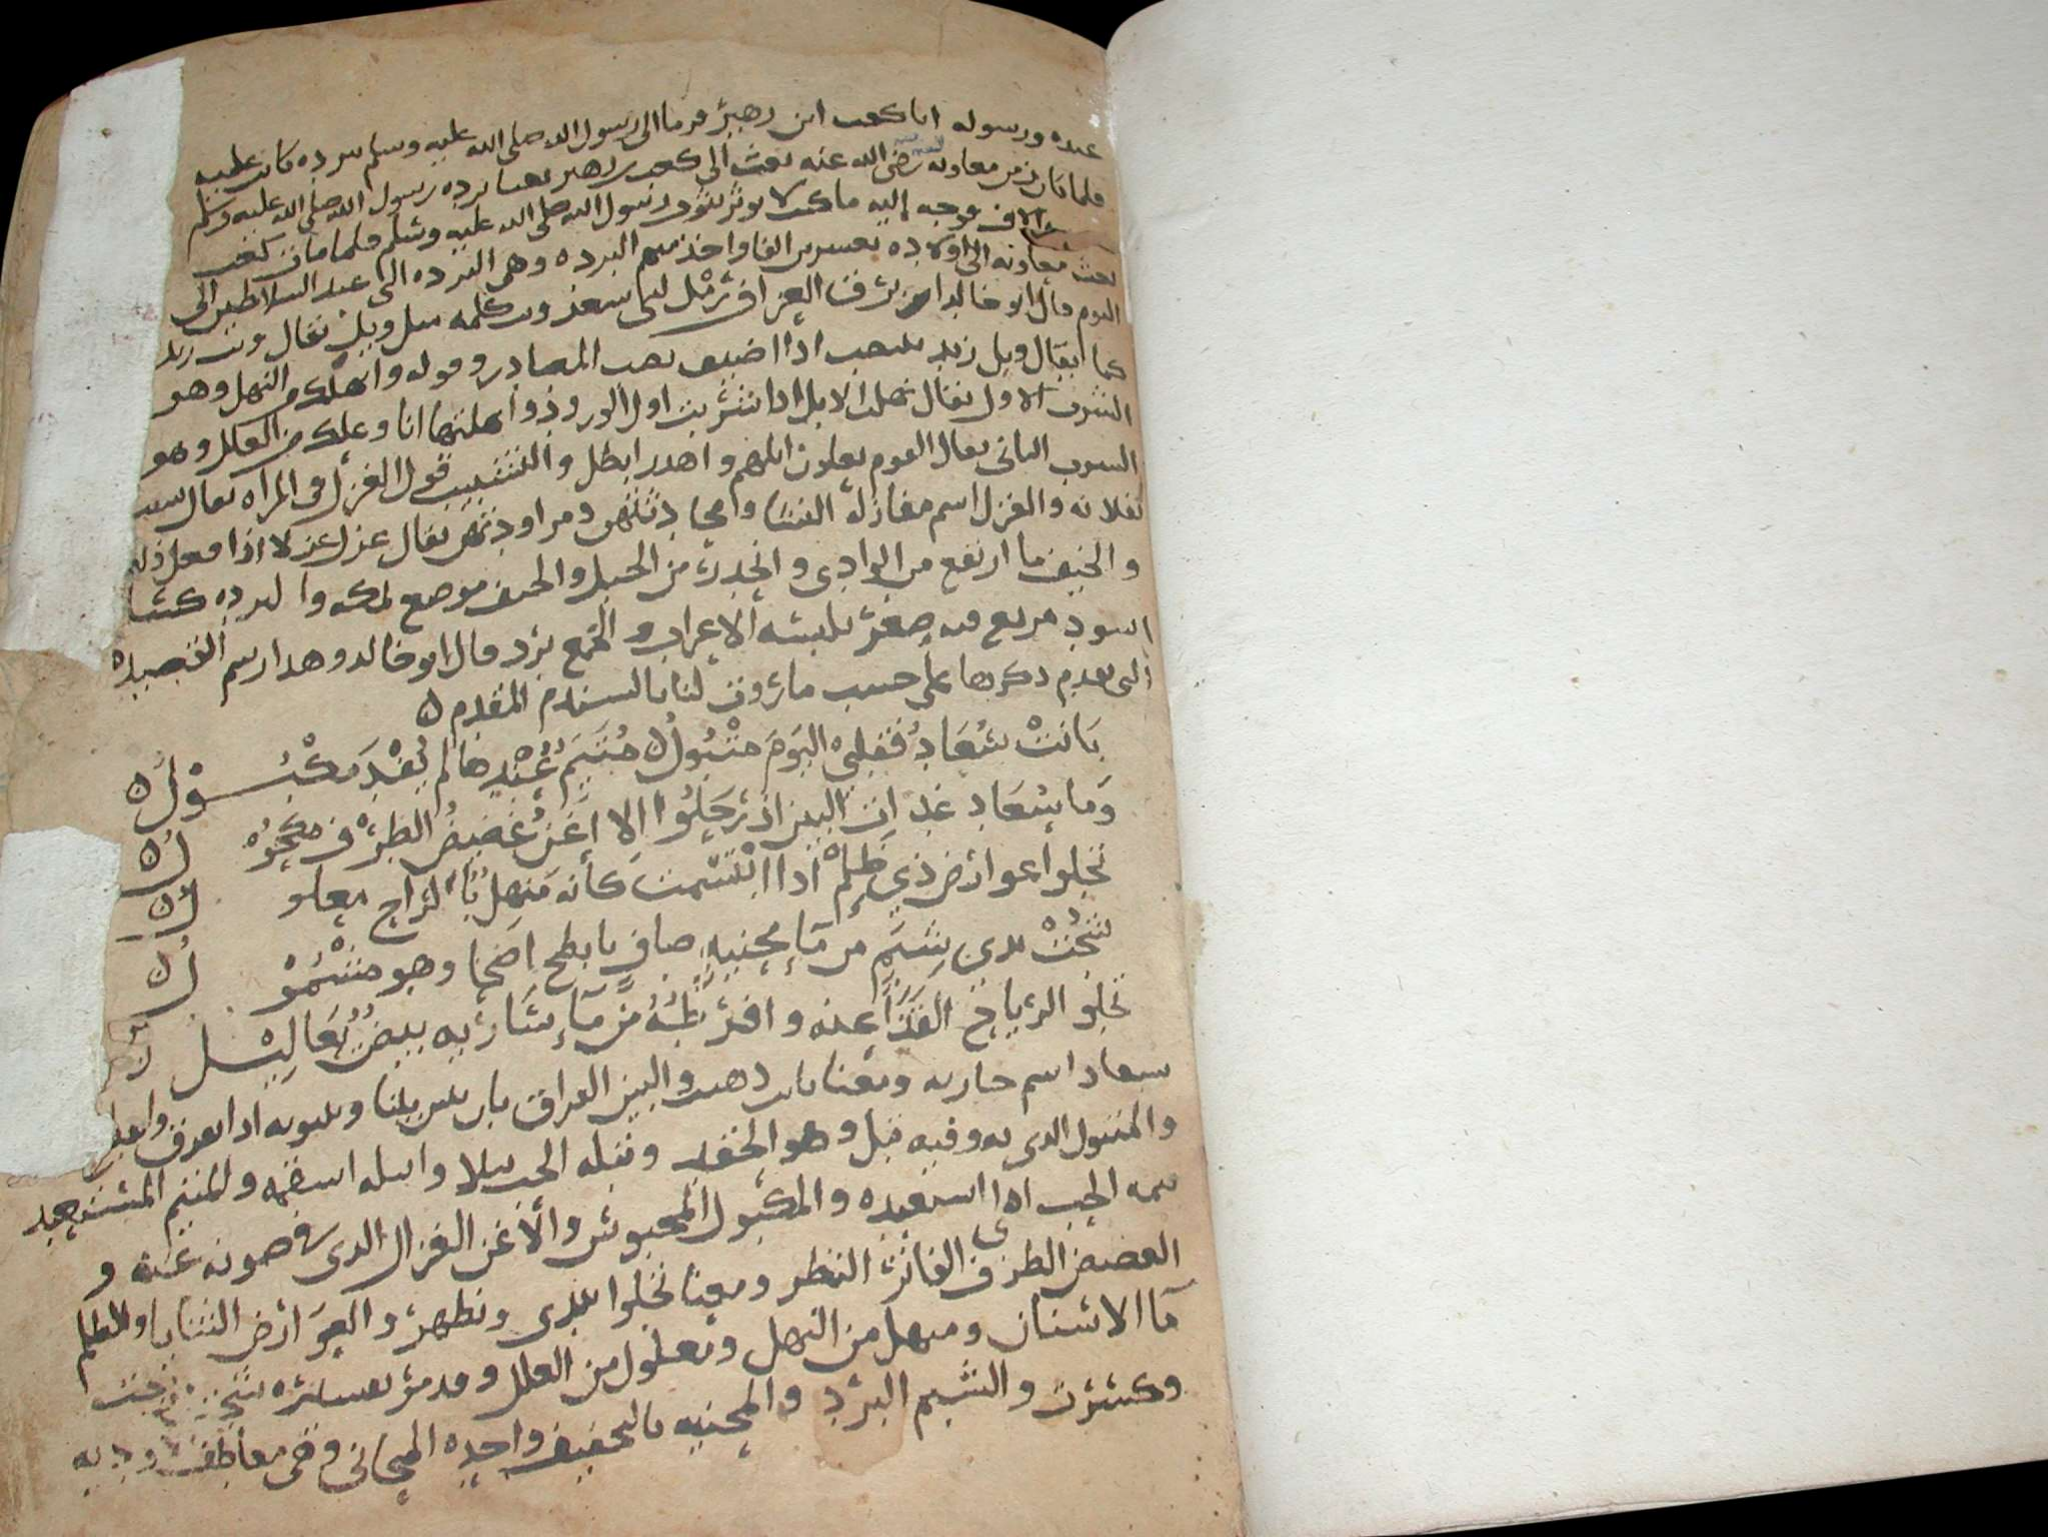 عبده ورسوله انا كعب ابن زهير فرما الى رسول الله صلى الله عليه وسلم برده كانت عليه
فلما كان زمن معاويه رضى الله عنه بعث الى كعب بن زهير بعنا برده رسول الله صلى الله عليه وسلم
الاف فوجه إليه ما كنت لا وثر بثوب رسول الله صلى الله عليه وسلم فلما مات كعب
بعث معاويه الى اولاده بعشرين الفا واخذ منهم البرده وهى البرده التى عند السلاطين الى
اليوم قال ابو خالد
كما يقال ويل زيد اذا اضيف نصب المصادر وقوله وانهلك من النهل وهو
الشرب الاول يقال نهلت الابل اذا شربت اول الورود وانهلتها انا وعلك من العلل وهو
الشرب الثانى يقال القوم يعلون ابلهم واهدر ابطل والتشبيب قول الغزل فى المراه يقال شبب
بفلانه والغزل اسم مغازله النسا ومحادثتهن ومراودتهن يقال غزل غزلا اذا فعل ذلك
والخيف ما ارتفع من الوادى وانحدر من الجبل والخيف موضع بمكه والبرده كسا
اسود مربع فيه صغر يلبسه الاعراب والجمع برد قال ابو خالد وهدا رسم القصيده
التى تقدم ذكرها على حسب ما روت لنا بالسند المقدم ه
بَانَتْ سُعَادُ فَقلبي اليَومَ مَتْبُولُ ه مُتَيَمٌ عِنْدِهَا لم يُفْدَ مَكْبُــوْلُ ه
وَمَا سُعَاد غداة البين اذ رَحَلُوا الا اَغَنُ غَضِيضُ الطرْف مكحوْلُ ه
تجلوا عوارض ذي ظَلْم اذا ابتسمت كأنه مَنهلٌ بالراح معلولُ ه
شُجَّتْ بذي شَبَمٍ من مَآءِ مَحْنِيهٍ صافٍ بابطح اضحا وهو مشْمُوْلُ ه
تجلو الرياح القَذَا عنه وافرطُهُ من مَآءِ سَاريه بيضٌ يَعَالِيْلُ
سعاد اسم جاريه ومعنا بانت ذهبت والبين الفراق بان يبين بينا وبينونه اذا فرق وابعد
والمتبول الدى به وفيه تبل وهو الحقد وتبله الحب تبلا واتبله اسقمه والمتيم المستعبد
تيمه الحب اذا استعبده والمكبول المحبوس والأغن الغزال الدى فى صوته غنه و
الغضيض الطرف الفاتر النظر ومعنا تجلوا تبدى وتظهر والعوارض الثنايا والظلم
مآ الاسنان ومنهل من النهل ومعلول من العلل وقد مر تفسيره شجت مزجت
وكسرت والشبم البرد والمحنيه بالتخفيف واحده المحانى وهى معاطف اوديه